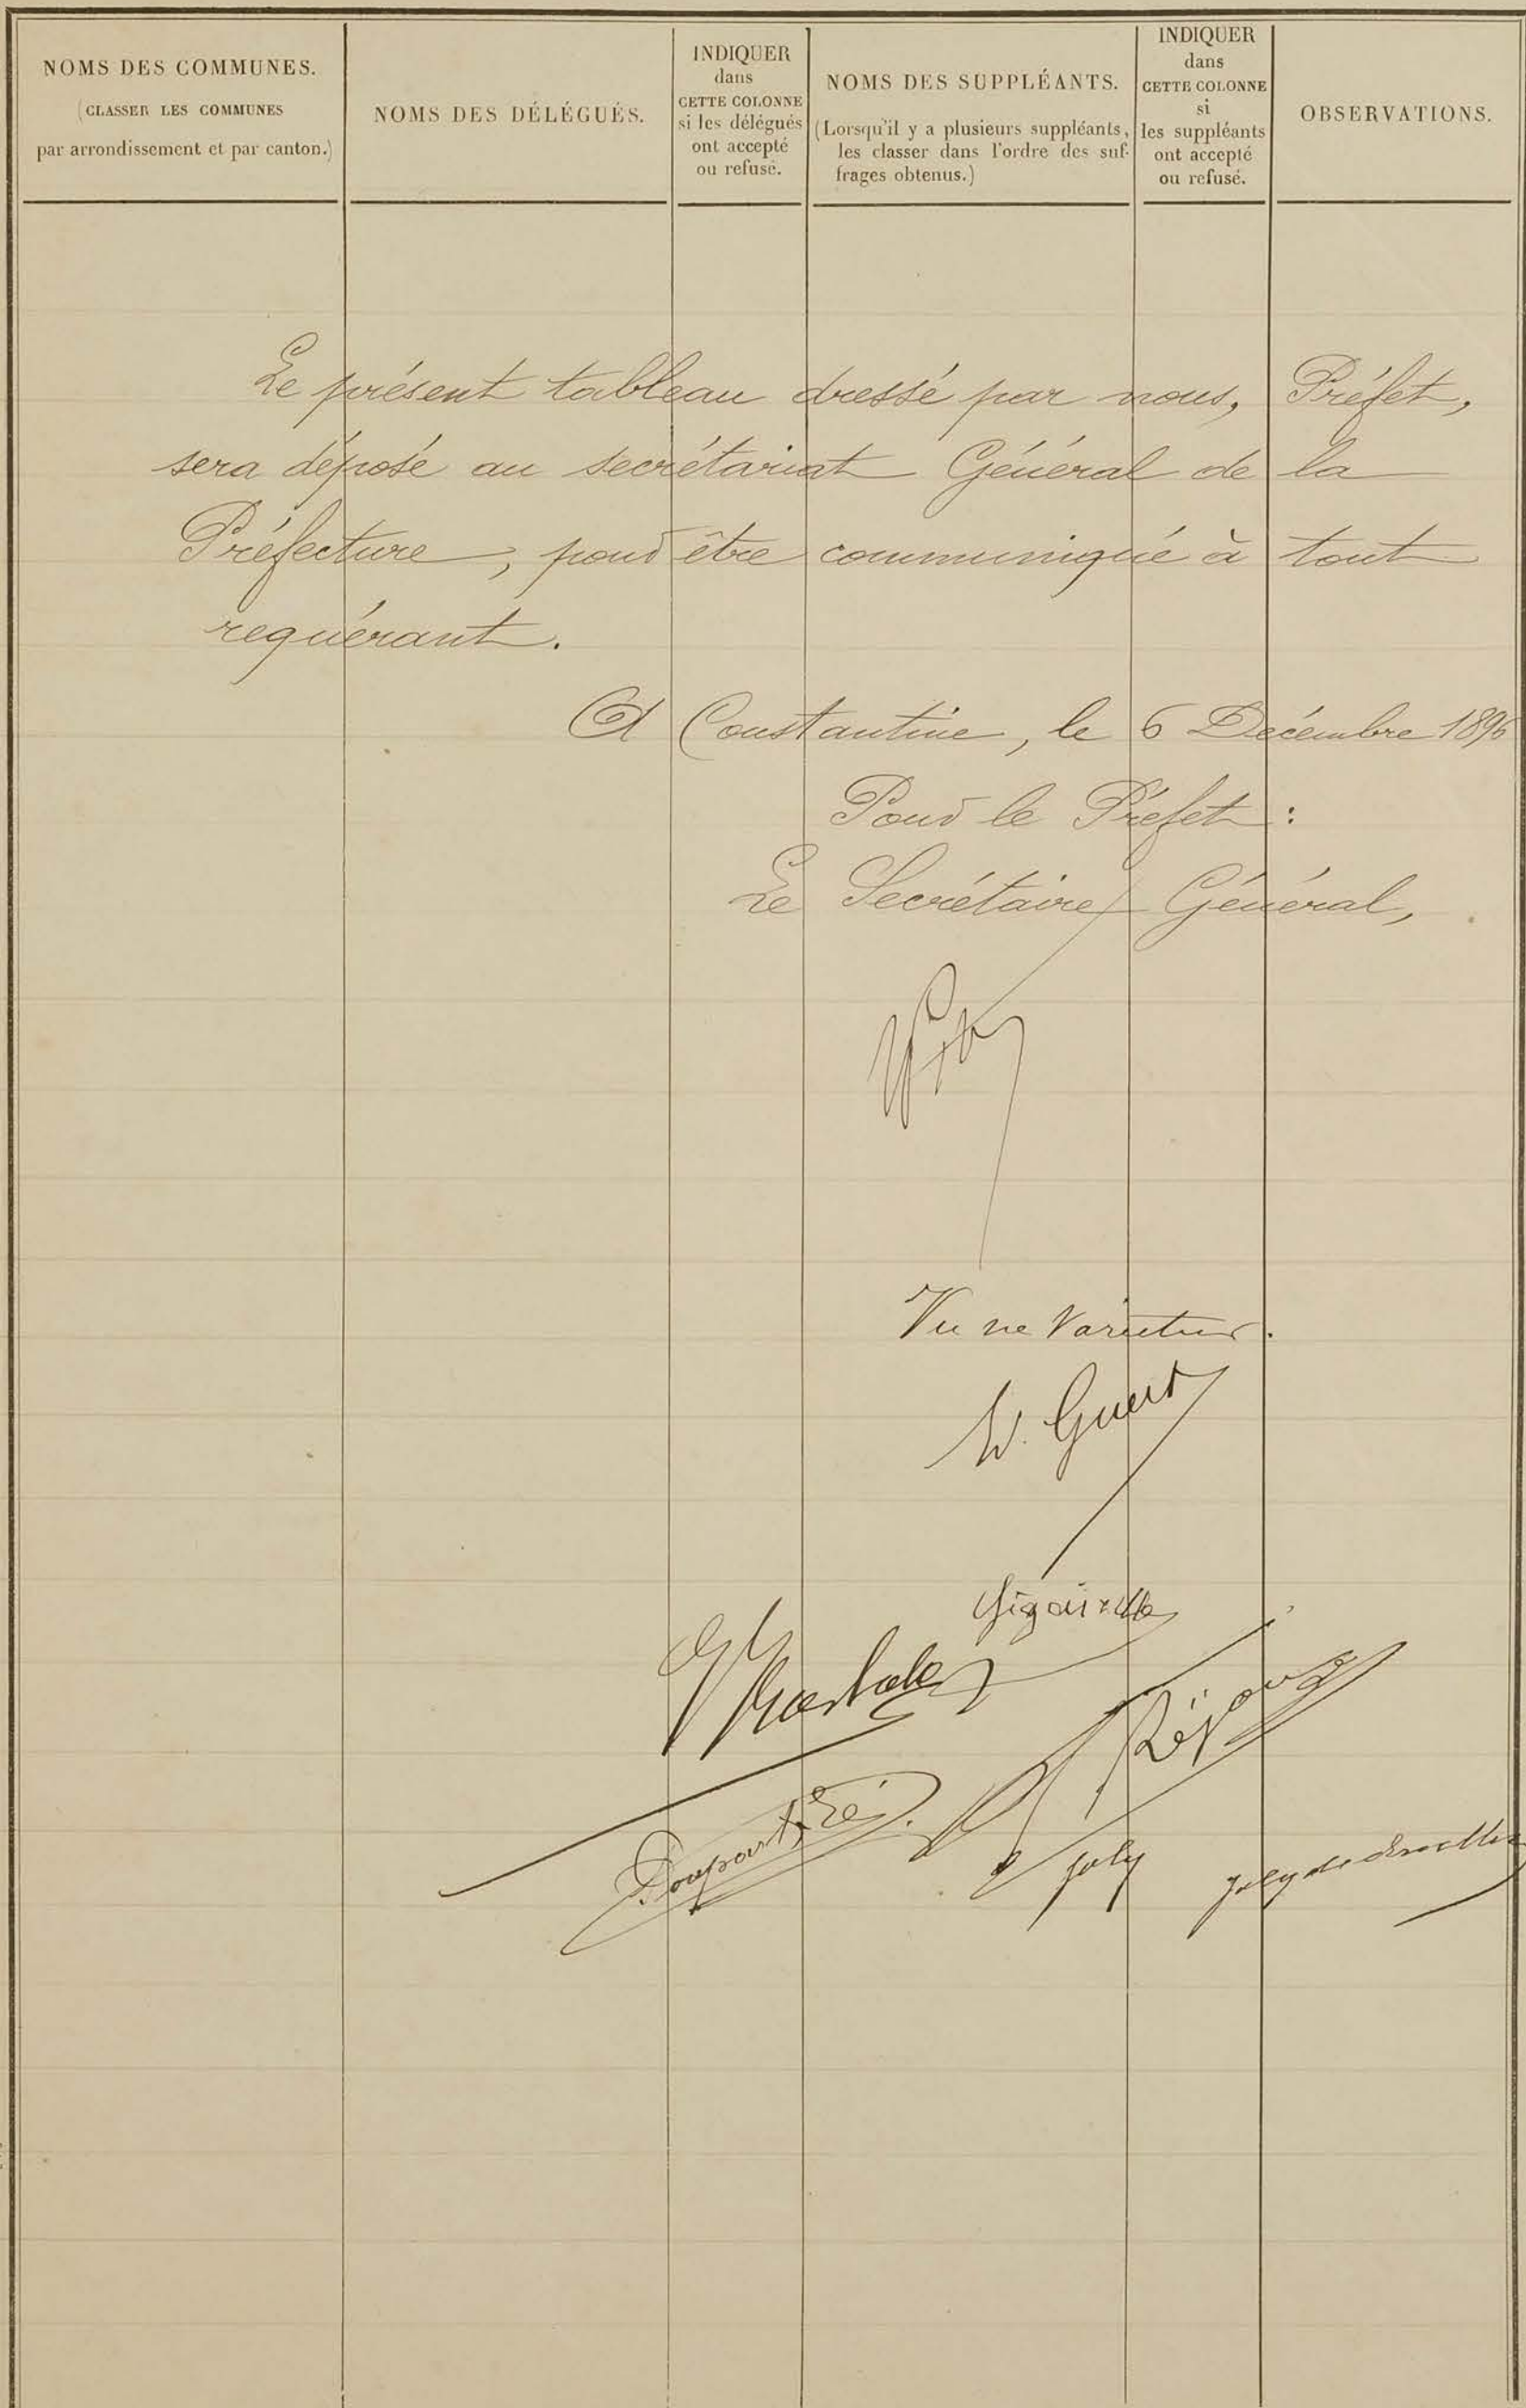 NOMS DES COMMUNES.
(CLASSER LES COMMUNES
par arrondissement et par canton.)
NOMS DES DÉLÉGUÉS.
INDIQUER
dans
CETTE COLONNE
si les délégués
ont accepté
ou refusé.
NOMS DES SUPPLÉANTS.
(Lorsqu'il y a plusieurs suppléants,
les classer dans l'ordre des suf-
frages obtenus.)
INDIQUER
dans
CETTE COLONNE
si
les suppléants
ont accepté
ou refusé.
OBSERVATIONS.
Le présent tableau dressé par nous, Préfet,
sera déposé au secrétariat Général de la
Préfecture, pour être communiqué à tout
requérant.
A Constantine, le 6 Décembre 1896
Pour le Préfet :
Le Secrétaire Général,
Vu ne varietur.
Joly